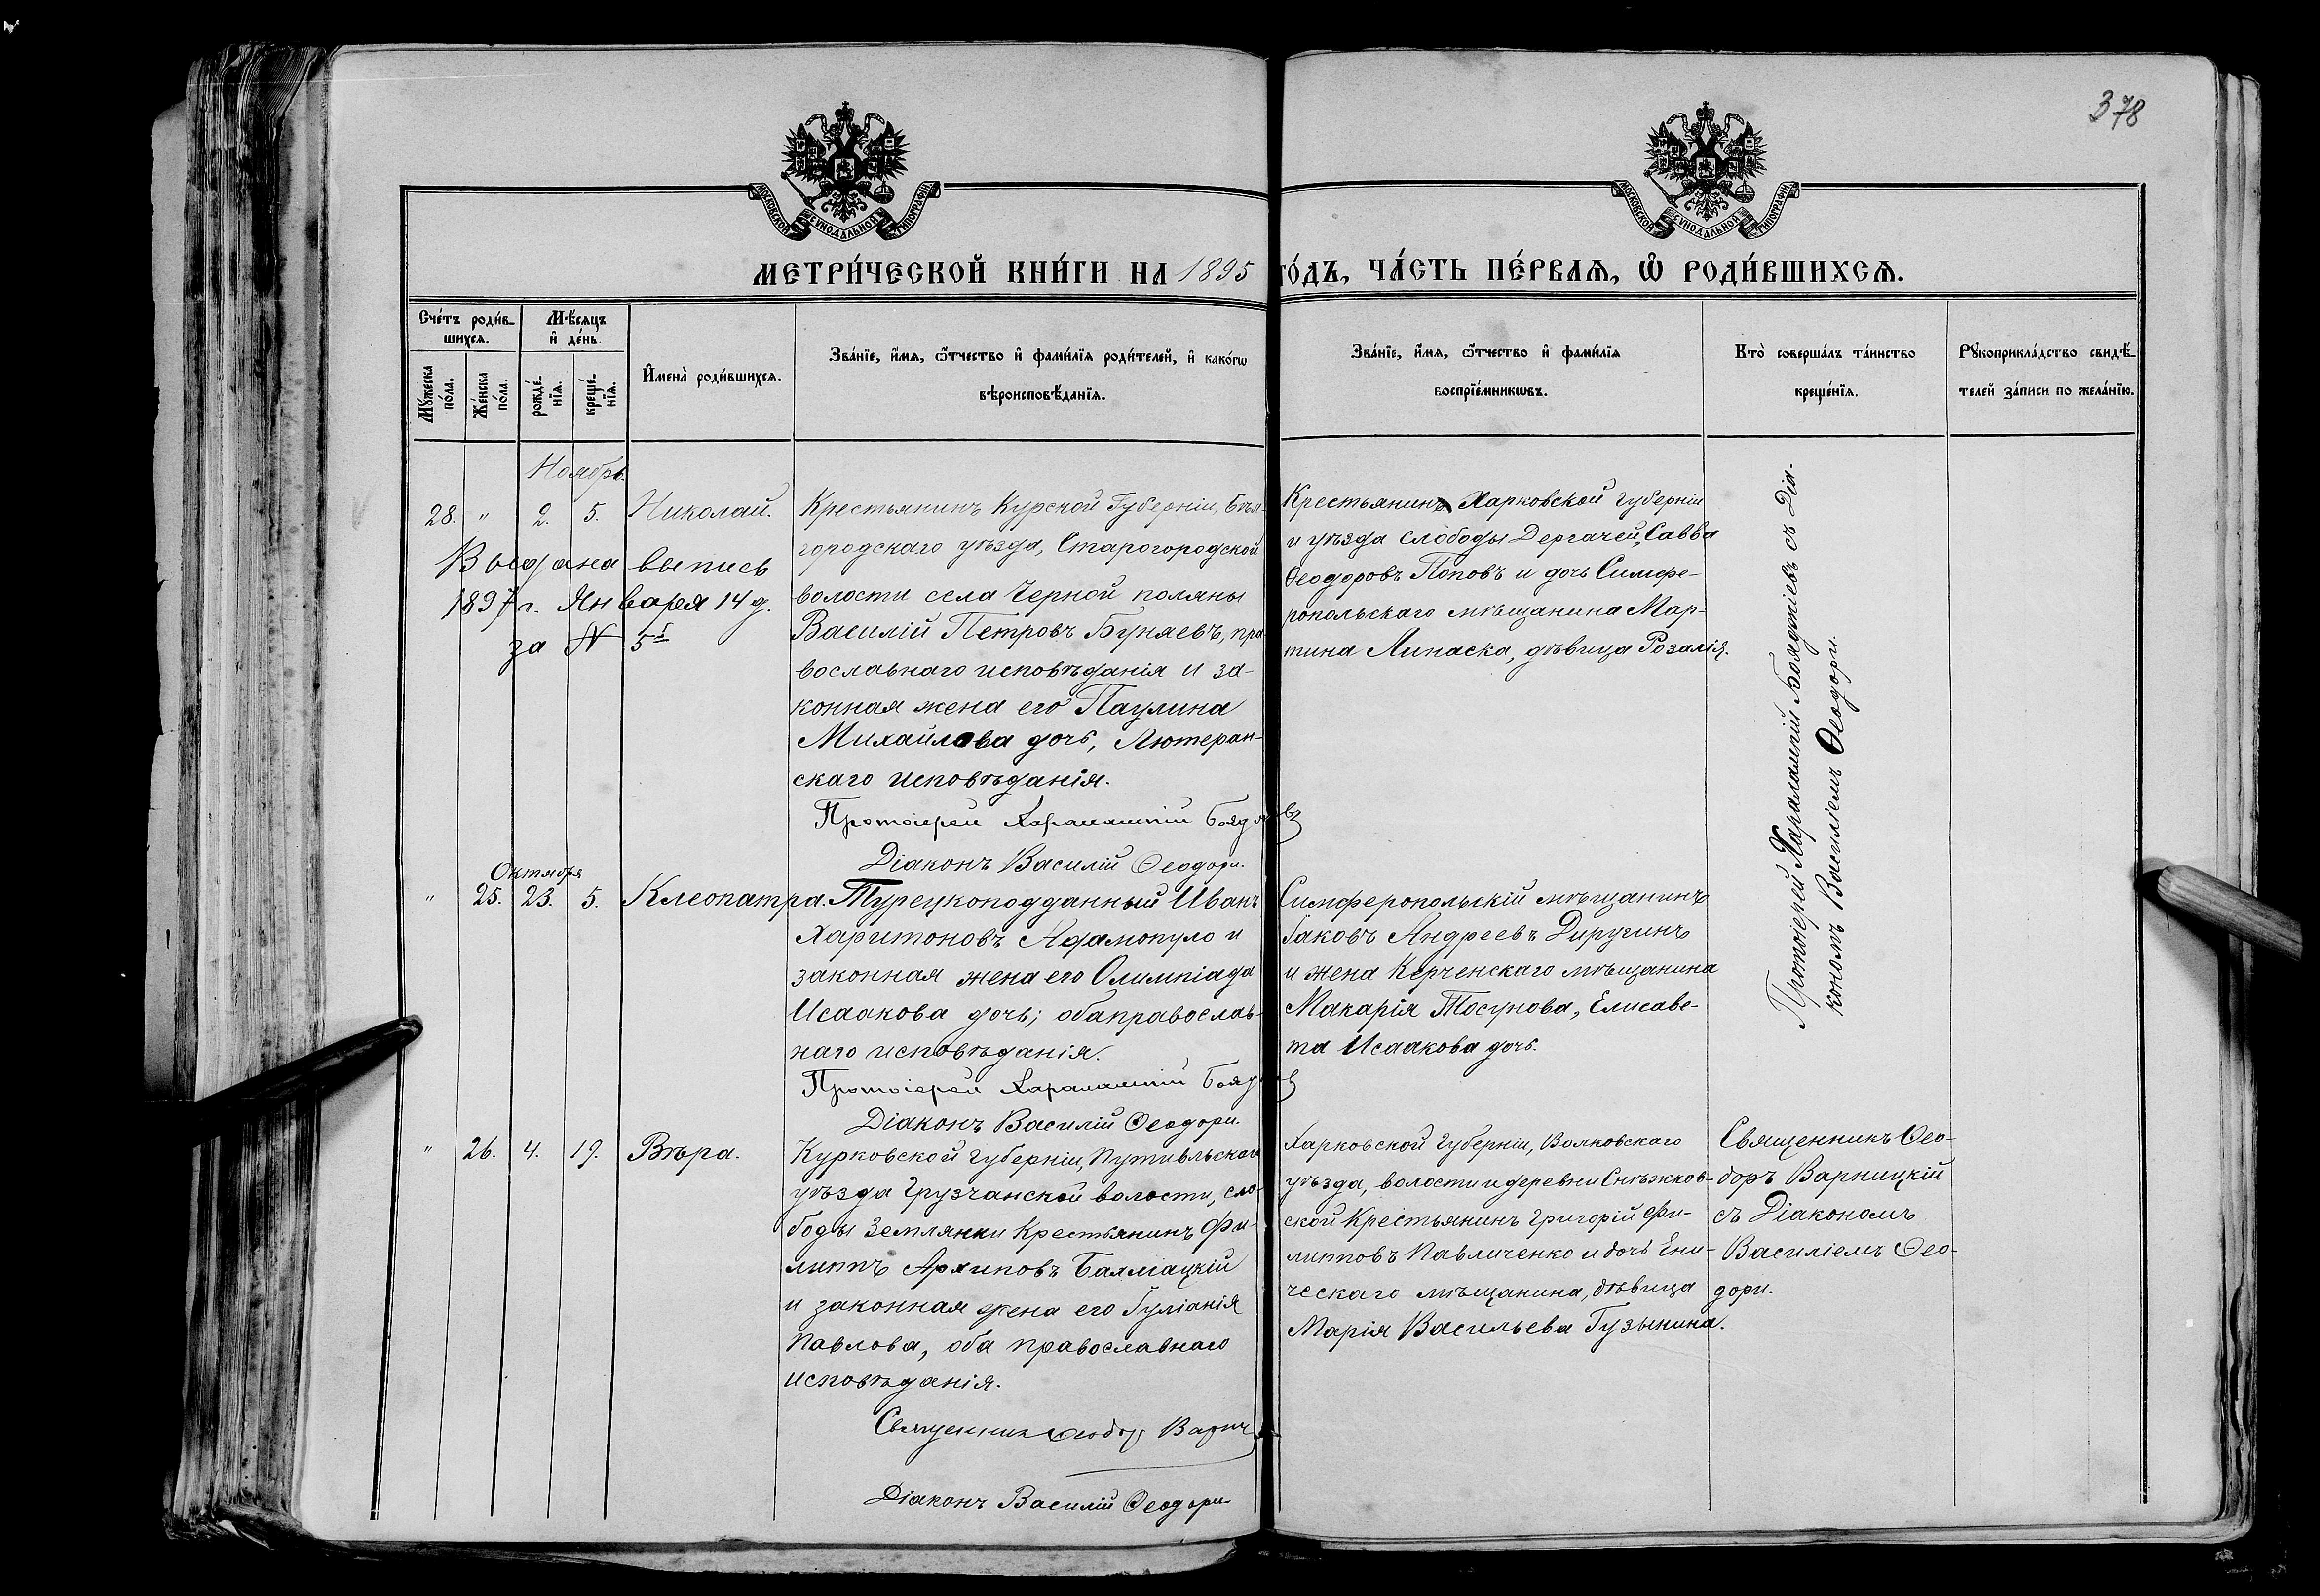 378
МОСКОВСКОЙ СѴНОДАЛЬНОЙ ТИПОГРАФІИ
МОСКОВСКОЙ СѴНОДАЛЬНОЙ ТИПОГРАФІИ
МЕТРИ́ЧЕСКОЙ КНИ́ГИ НА 1895 ГО́ДЪ, ЧА́СТЬ ПЕ́РВАЯ, Ѽ РОДИ́ВШИХСЯ.
Сче́тъ роди́в-
шихся.
Мѣ́сяцъ
и҆ де́нь.
Мꙋ́жеска
по́ла.
Же́нска
по́ла.
рожде́-
нїя.
креще́-
нїя.
И҆мена̀ роди́вшихся.
Зва́нїе, и҆́мя, ѻ҆́тчество и҆ фами́лїя роди́телей, и҆ како́гѡ
вѣроисповѣ́данїя.
Зва́нїе, и҆́мя, ѻ҆́тчество и҆ фами́лїя
воспрїе́мникѡвъ.
Кто̀ соверша́лъ та́инство
креще́нїя.
Рꙋкоприкла́дство свидѣ́-
телей за́писи по жела́нїю.
Ноябрь.
28. " 2. 5. Николай.
Выдана выпись
1897 г. Января 14 д.
за № 5
Крестьянинъ Курской Губерніи, Бѣл-
городскаго уѣзда, Старогородской
волости села Черной поляны
Василій Петровъ Буняевъ, пра-
вославнаго исповѣданія и за-
конная жена его Паулина
Михайлова дочь, Лютеран-
скаго исповѣданія.
Протоіерей Харалампій
Діаконъ Василій Ѳеодори.
Крестьянинъ Харковской губерніи
и уѣзда слободы Дергачей, Савва
Ѳеодоровъ Поповъ и дочь Симфе-
ропольскаго мѣщанина Мар-
тина Линаска, дѣвица Розалія.
Протоіерей Харалампій Бояджіевъ съ Діа-
кономъ Василіемъ Ѳеодори.
Октября
" 25. 23. 5. Клеопатра.
Турецкоподданный Иванъ
Харитоновъ Адамопуло и
законная жена его Олимпіада
Исаакова дочь; оба православ-
наго исповѣданія.
Протоіерей Харалампій
Діаконъ Василій Ѳеодори.
Симферопольскій мѣщанинъ
Іаковъ Андреевъ Диругинъ
и жена Керченскаго мѣщанина
Макарія Тосунова, Елисаве-
та Исаакова дочь.
" 26. 4. 19. Вѣра.
Курковской губерніи, Путивльскаго
уѣзда Грузчанской волости, сло-
боды Землянки Крестьянинъ Фи-
липпъ Архиповъ Балмацкій
и законная жена его Іуліанія
Павлова, оба православнаго
исповѣданія.
Священникъ Ѳеодоръ
Діаконъ Василій Ѳеодори
Харковской губерніи, Волковскаго
уѣзда, волости и деревни Снѣжков-
ской Крестьянинъ Григорій Фи-
липповъ Павличенко и дочь Ени-
ческаго мѣщанина, дѣвица
Марія Васильева Гузынина.
Священникъ Ѳео-
доръ Варницкій
съ Діакономъ
Василіемъ Ѳео-
дори.